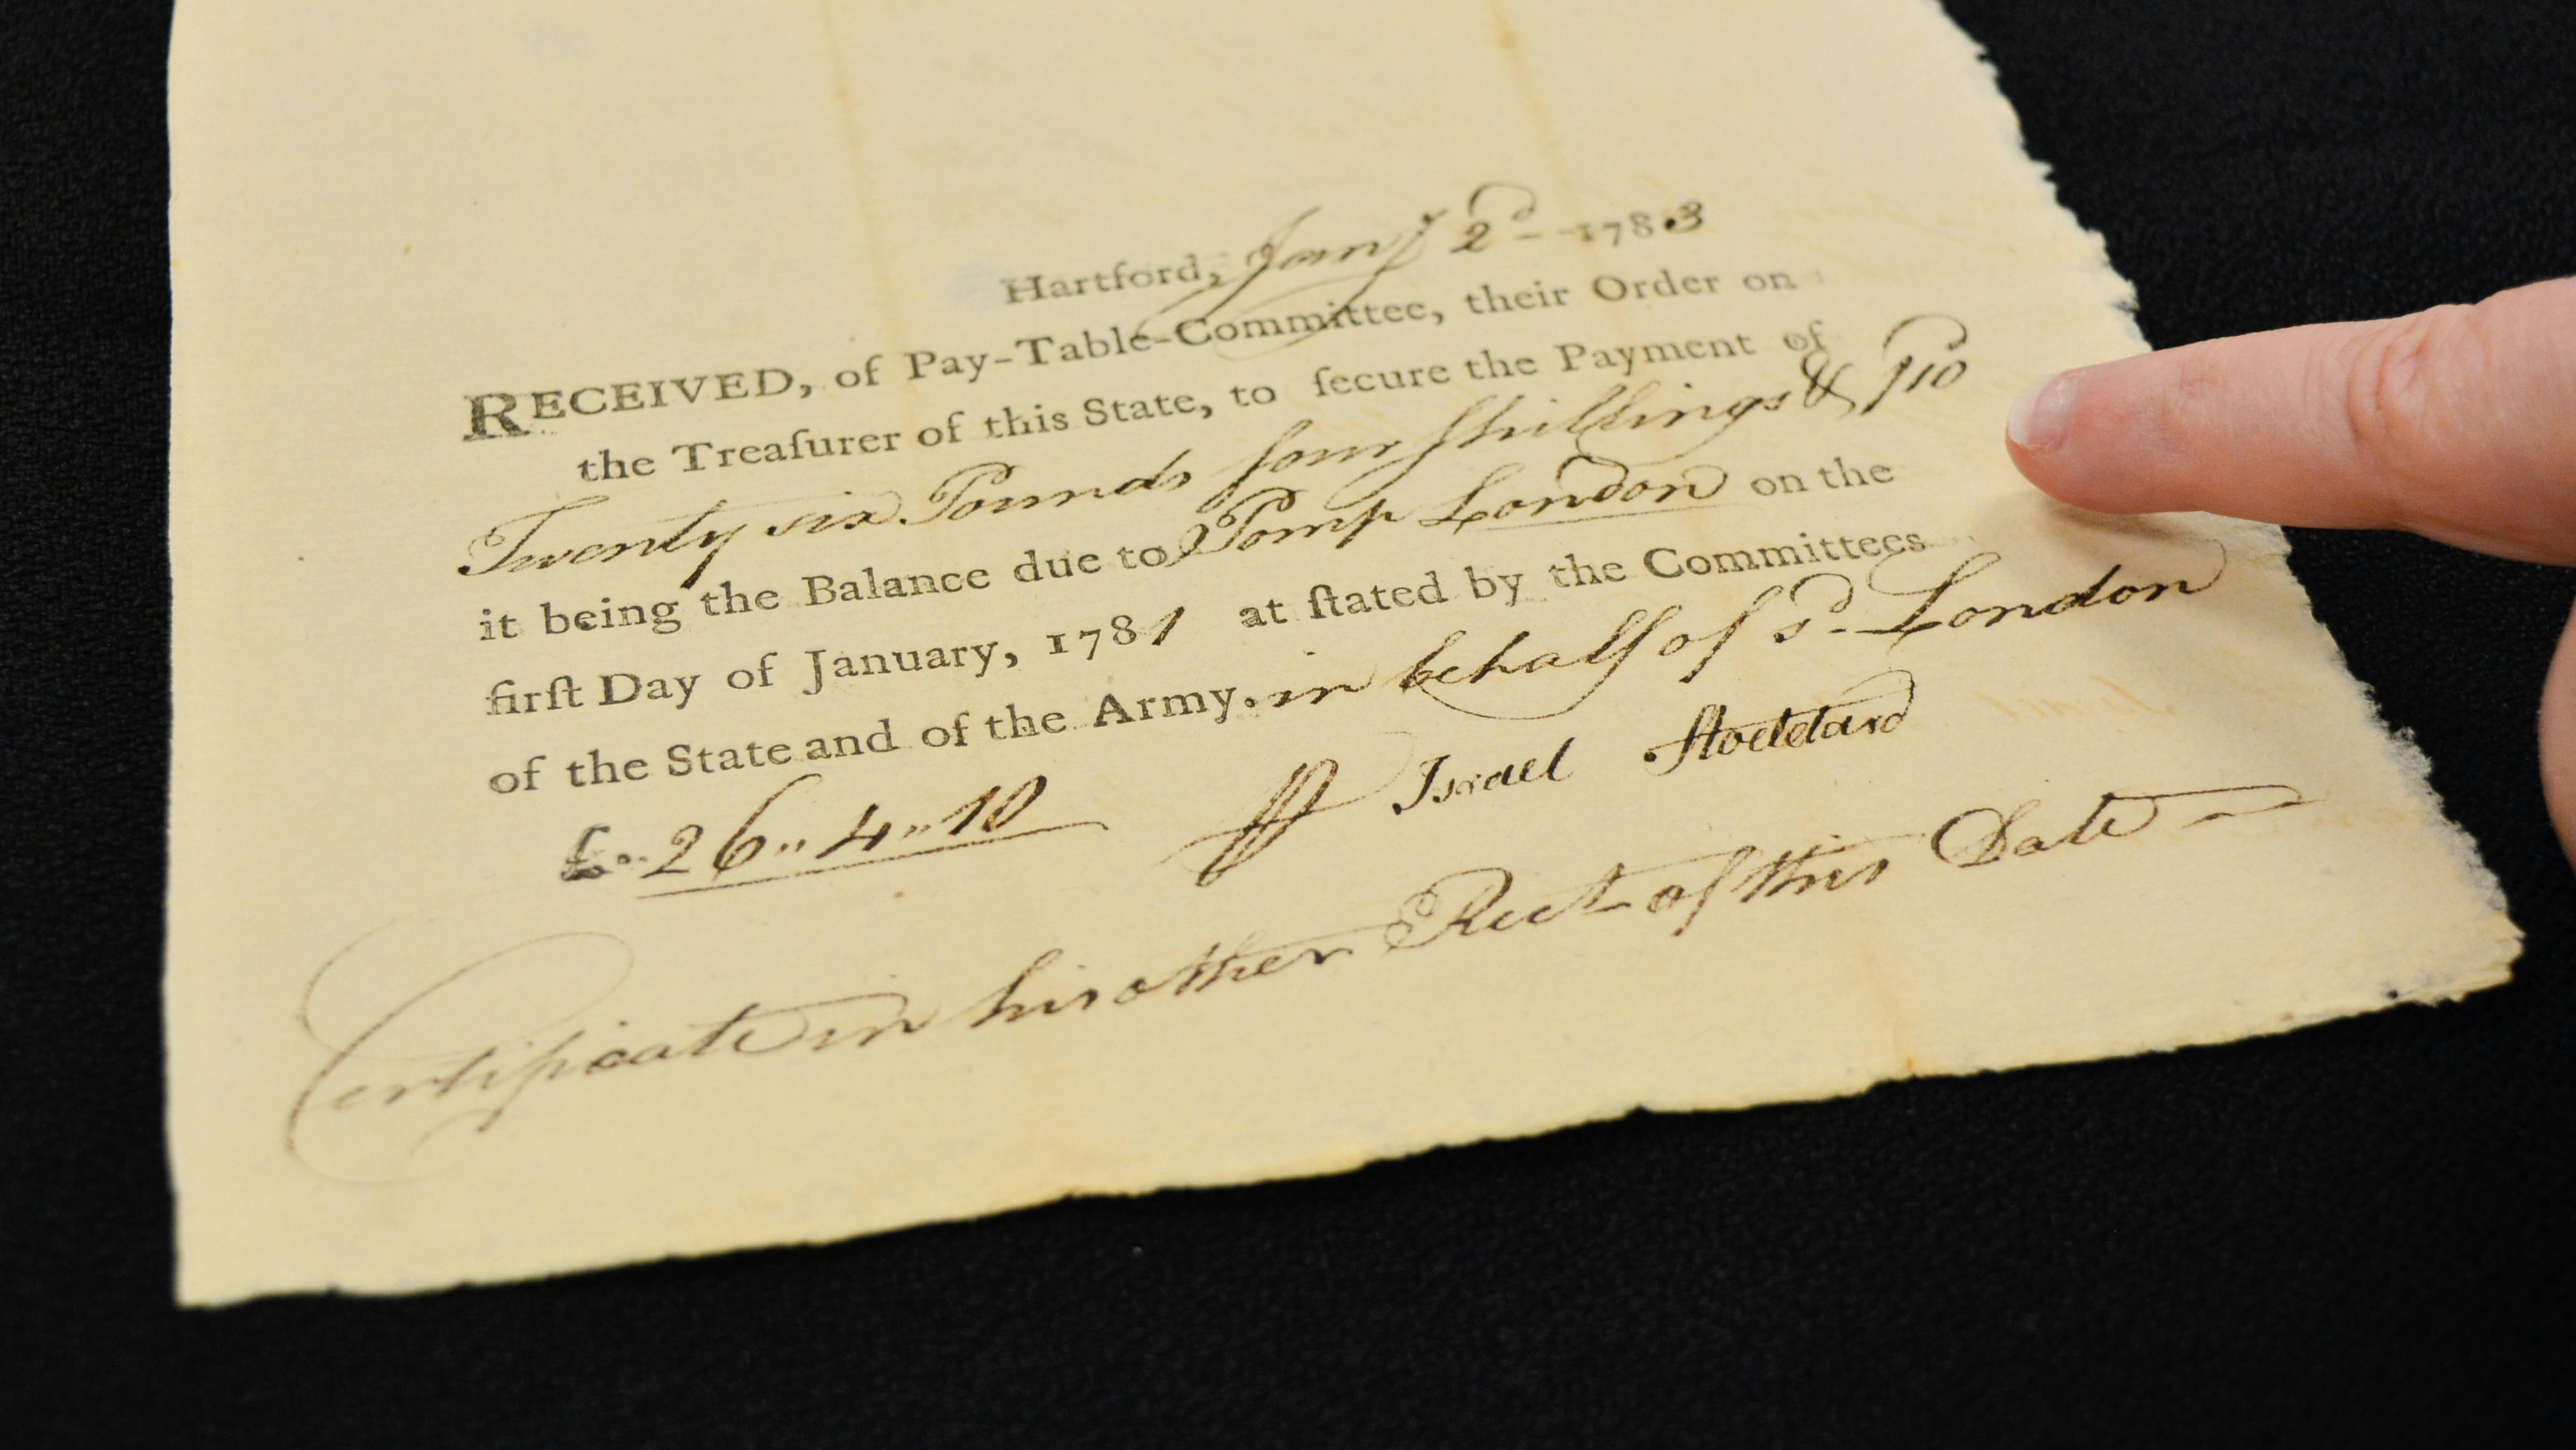 Hartford, Jany 2d - 1783
RECEIVED, of Pay-Table-Committee, their Order on
the Treaſurer of this State, to ſecure the Payment of
Twenty six Pounds four ſhillings & /10
it being the Balance due to Pomp London on the
firſt Day of January, 1781 at ſtated by the Committees
of the State and of the Army. in behalf of sd. London
£. 26,, 4,, 10 Israel Stoddard
Certificate in his other Rect of this Date